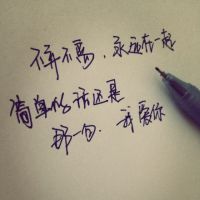 不弃不离、永远在一起
简单的话还是
那一句.我爱你